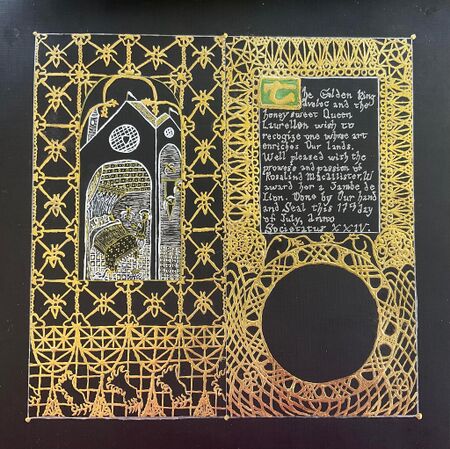 The Golden King
Aveloc and the
honey sweet Queen
Laurellen wish to
recogise one whose art
enriches Our lands.
Well pleased with the
prowess and passion of
Rosalind Macallister, W
award her a Jambe de
Lion. Done by Our hand
and Seal this 17th day
of July, Anno
Societatus XXIV.